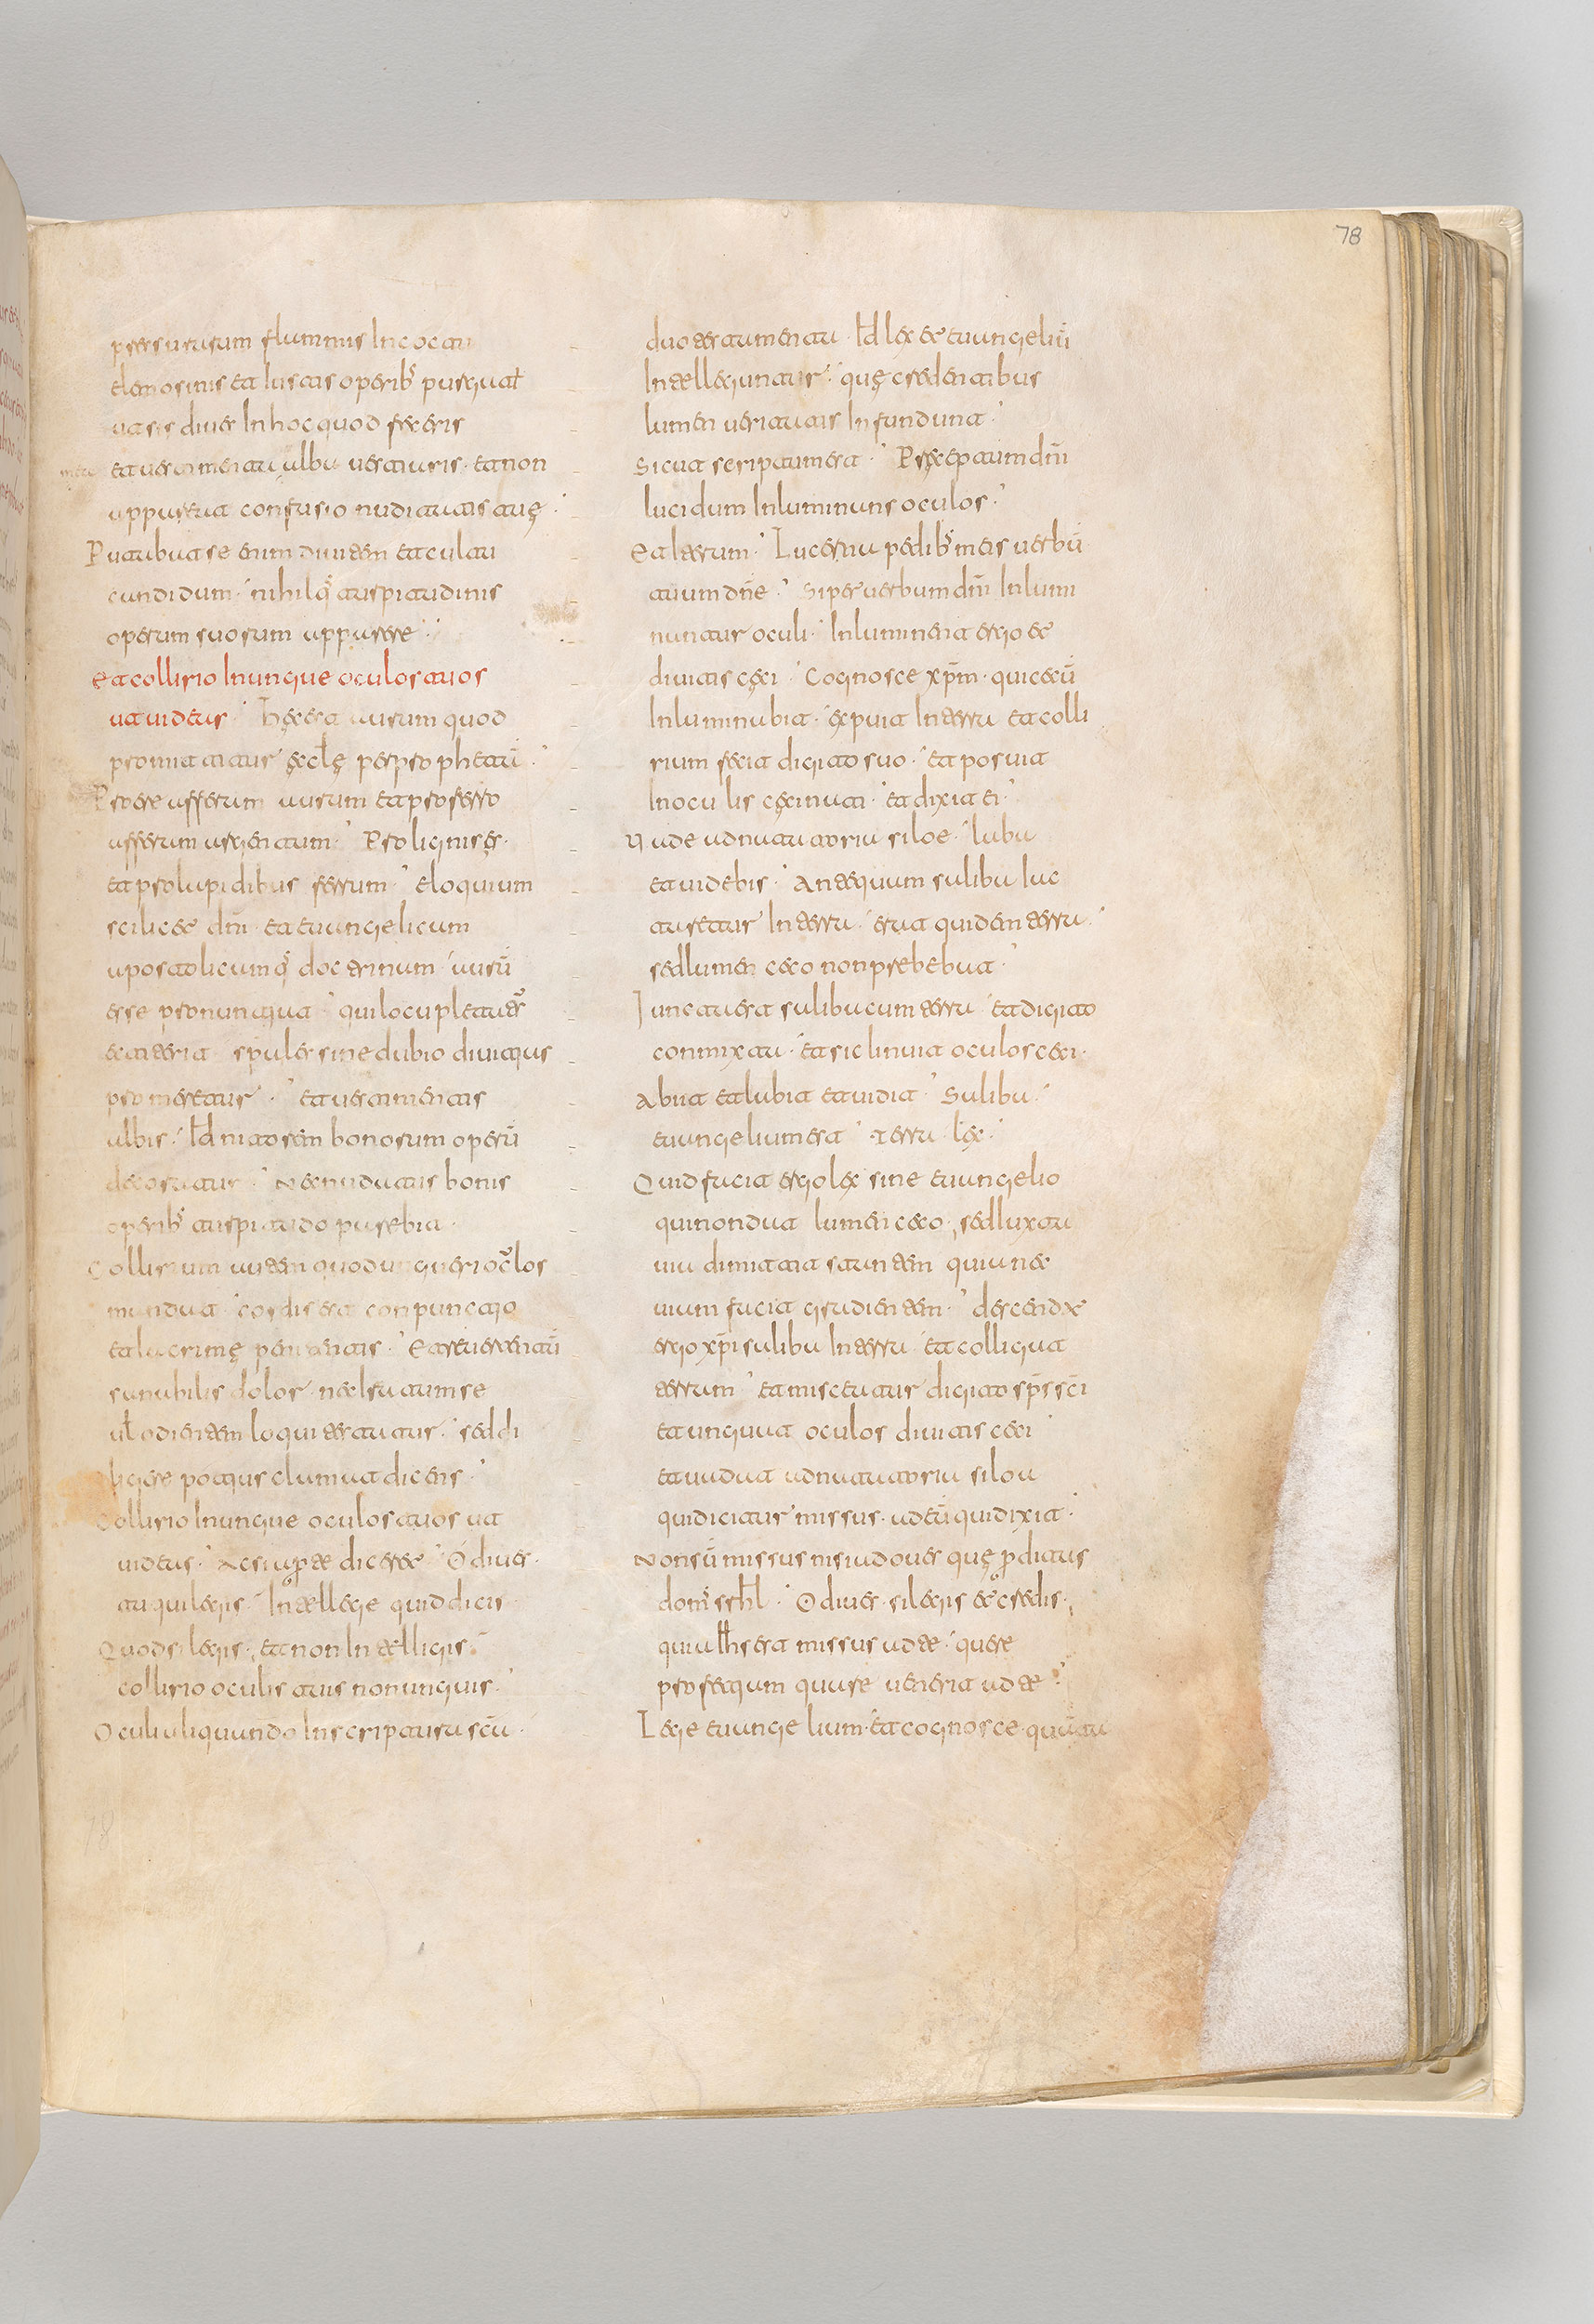 pressurarum fluminis Incocta
elemosinis et iustis operib'
ut sis dives In hoc quod feceris
et vestimenta alba vestiaris. et non
appareat confusio nuditatis tuę
Putabat se enim divitem et cultu
candidum. nihilq' turpitudinis
operum suorum apparere
Et collirio Inungue oculos tuos
ut videas. hęc est aurum quod
promittitur ęclę per prophetam
Pro ere afferam aurum et pro ferro
afferam argentum. Pro lignis ęs.
et pro lapidibus ferrum. Eloquium
scilicet dñi et evangelicum
apostolicumq' doctrinam aurū
esse pronuntiat qui locupletatus
extiterit spūales sine dubio divitias
promeretur. et vestimentis
albis. Id nitorem bonorum operū
decoratur. Nec nudatus bonis
operib' turpitudo parebit.
Collirium autem quod ungueri oclos
mundat cordis est conpunctio
et lacrimę penitentis. Et revertentiū
sanabilis dolor.
odientem loqui testatur. sed di
ligere potius clamat dicens.
Collirio Inungue oculos tuos ut
videas. Ac si aperte diceret O dives
tu qui legis. Intellege quid dicis
Quod si legis. et non Intelligis
collirio oculis tuis non unguis.
Oculi aliquando In scriptura scā
duo testamenta. Id lex et evangeliū
Intelleguntur. quę credentibus
lumen veritatis Infundunt.
Sicut scriptum est. Preceptum dñi
lucidum Inluminans oculos.
Et Iterum. Lucerna pedib' meis verbū
tuum dñe. Si per verbum dñi Inlumi
nantur oculi. Inluminent ergo et
divitis ceci. Cognosce xp̄m. qui cecū
Inluminabit. expuit In terra et colli
rium fecit digito suo. et posuit
In oculis ceci nati. et dixit ei.
Vade ad natatoria siloe. laba
et videbis. Antequam saliba luc
taretur In terra. erat quidem terra.
sed lumen ceco non prebebat.
Iuncta est saliba cum terra et digito
conmixta. et sic linuit oculos ceci.
Abiit et labit et vidit. Saliba.
evangelium est. Terra. lex.
Quid facit ergo lex sine evangelio
qui non dat lumen ceco. sed luxta
via dimittit stantem quia nec
viam facit gradientem. descendx
ergo xp̄i saliba In terra et colligat
terrum. et misceatur digito sp̄s sc̄i
et unguat oculos divitis ceci
et vadat ad natatoria siloa
quidicitur missus. ad eū qui dixit.
Non sū missus nisi ad oves quę perditus
dom' srhl. O dives. si legis et credis.
quia ihs est missus ad te. quere
profectum quare venerit ad te.
Lege evangelium. et cognosce.
78